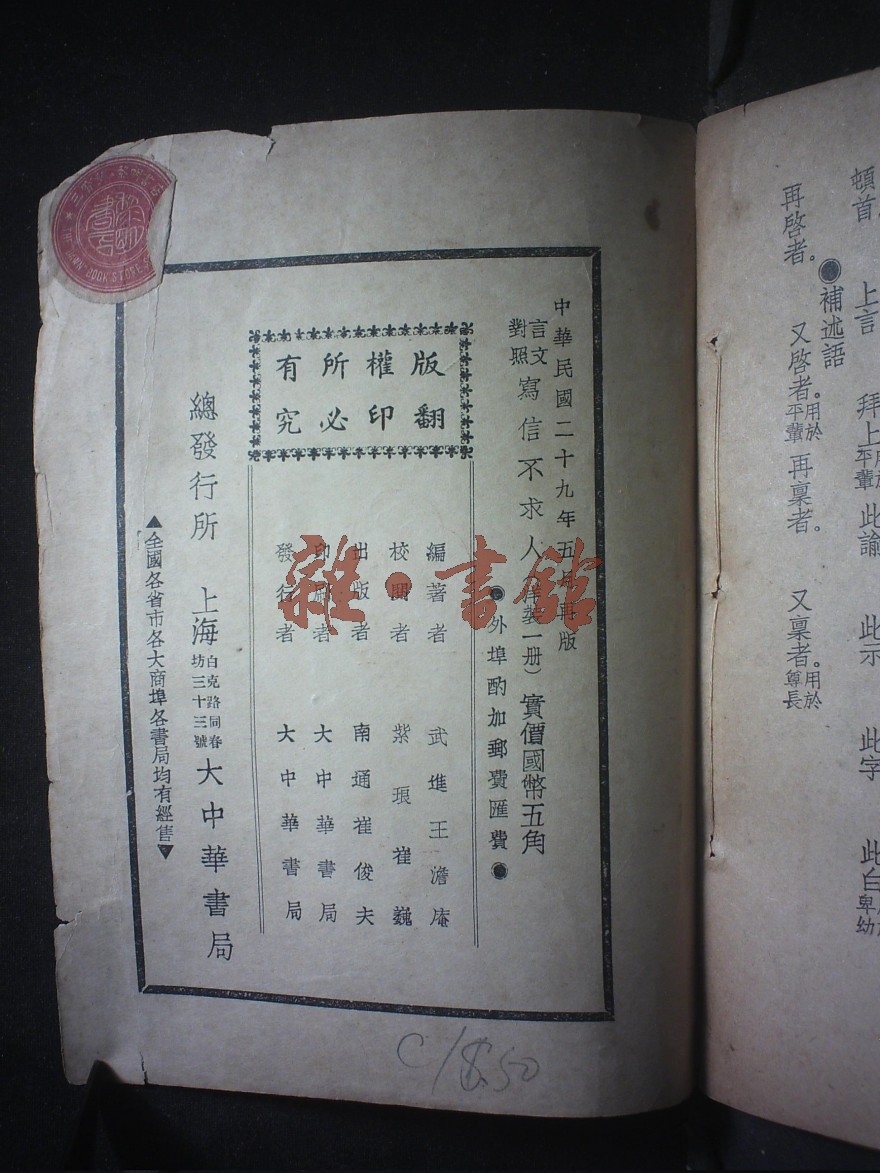 頓首。 上言 拜上用於平輩 此諭 此示 此字 此白
●補述語
再啓者。 又啓者。用於平輩 再稟者。 又稟者。用於尊長
中華民國二十九年五月再版
言文對照 寫信不求人(洋裝一册)實價國幣五角
●外埠酌加郵費匯費●
版權所有
翻印必究
編著者 武進王澹庵
校閱者 紫琅崔巍
出版者 南通崔俊夫
印刷者 大中華書局
發行者 大中華書局
總發行所 上海白克路同春坊三十三號 大中華書局
▲全國各省市各大商埠各書局均有經售▼
雜·書館
BOOK STORE
C/8.50